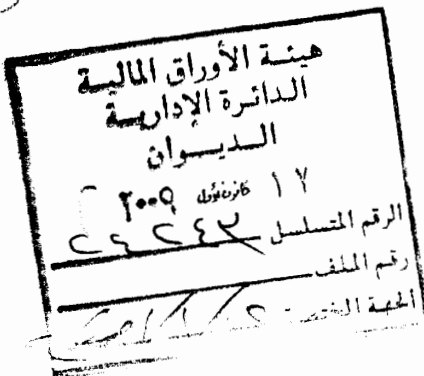 هيئة الأوراق المالية
الدائرة الإدارية
الديوان
١٧ كانون أول ٢٠٠٩
الرقم المتسلسل
رقم الملف
الجهة المختصة